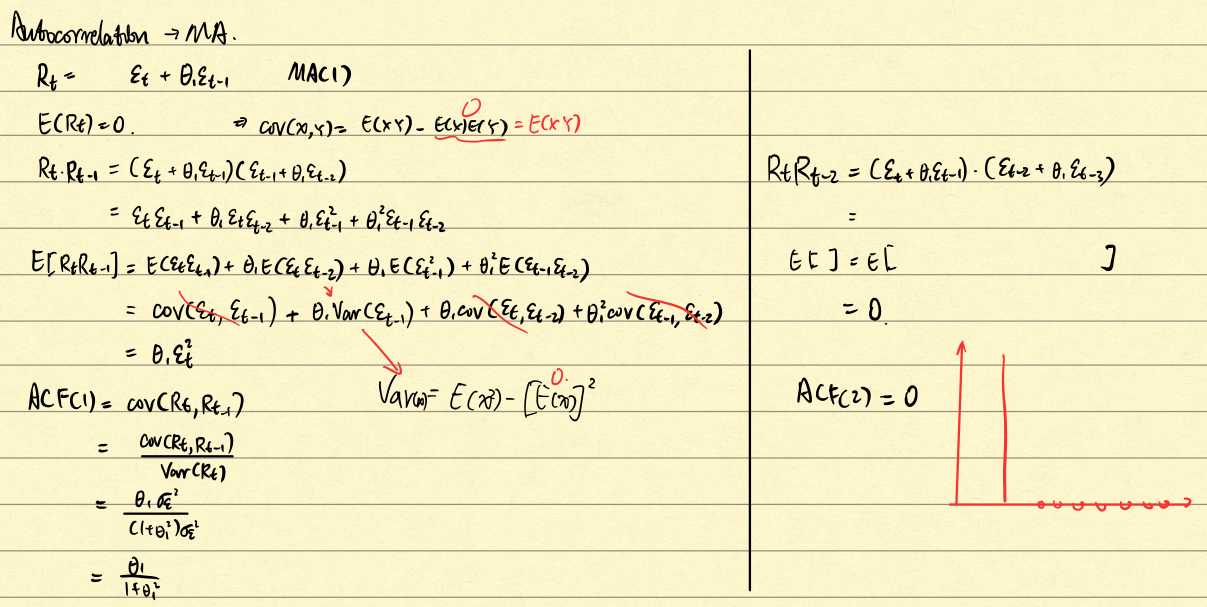 Autocorrelation → MA.
Rt = εt + θ₁εt-1 MA(1)
E(Rt) = 0. ⇒ cov(x,y) = E(xy) - E(x)E(y) = E(xy)
0
Rt·Rt-1 = (εt + θ₁εt-1)(εt-1 + θ₁εt-2)
= εtεt-1 + θ₁εtεt-2 + θ₁ε²t-1 + θ₁²εt-1εt-2
E[RtRt-1] = E(εtεt-1) + θ₁E(εtεt-2) + θ₁E(ε²t-1) + θ₁²E(εt-1εt-2)
= cov(εt, εt-1) + θ₁Var(εt-1) + θ₁cov(εt, εt-2) + θ₁²cov(εt-1, εt-2)
= θ₁εt²
Var(x) = E(x²) - [E(x)]²
0.
ACF(1) = cov(Rt, Rt-1)
= cov(Rt, Rt-1)
Var(Rt)
= θ₁σε²
(1+θ₁²)σε²
= θ₁
1+θ₁²
RtRt-2 = (εt + θ₁εt-1)·(εt-2 + θ₁εt-3)
=
E[ ] = E[ ]
= 0.
ACF(2) = 0